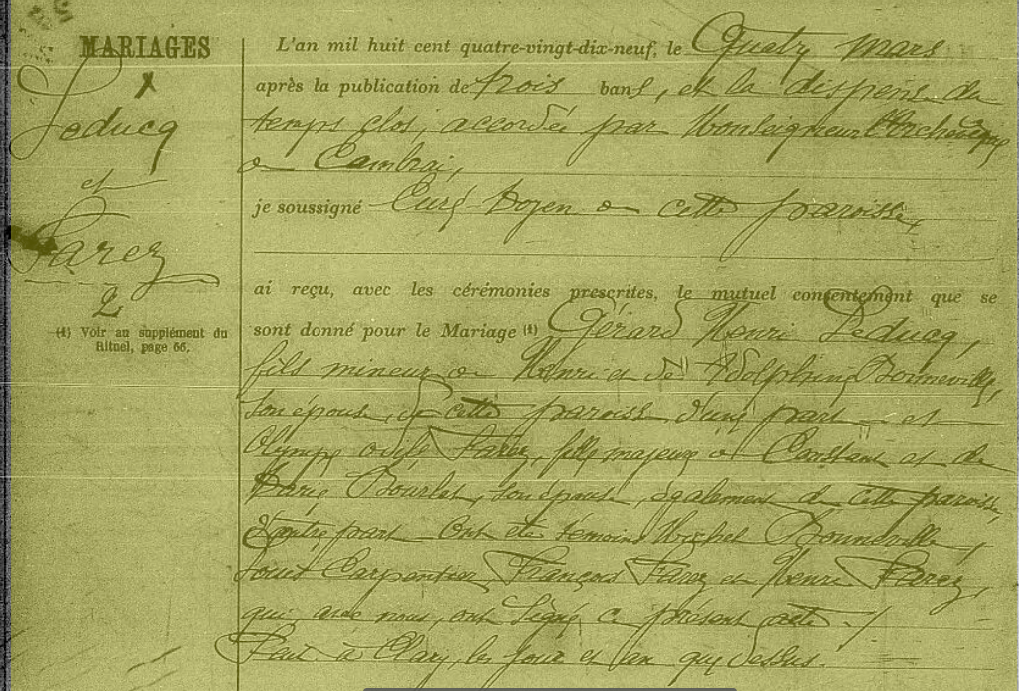 MARIAGES
Leducq
et
Farez
2
(1) Voir au supplément du
Rituel, page 66.
L'an mil huit cent quatre-vingt-dix-neuf, le Quatre mars
après la publication de trois bans, et la dispense de
temps clos, accordée par Monseigneur l'Archevêque
de Cambrai,
je soussigné Curé Doyen de cette paroisse,
ai reçu, avec les cérémonies prescrites, le mutuel consentement que se
sont donné pour le Mariage (1) Gérard Henri Leducq,
fils mineur de Henri et de Adolphine Bonneville,
son épouse, de cette paroisse d'une part et
Olympe Farez, fille majeure de Constant et de
Marie Bourlet, son épouse, également de cette paroisse,
d'autre part ont été témoins Michel Bonneville,
Louis Carpentier, François Farez et Henri Farez,
qui avec nous, ont signé ce présent acte ./
Fait à Clary, les jour et an que dessus.